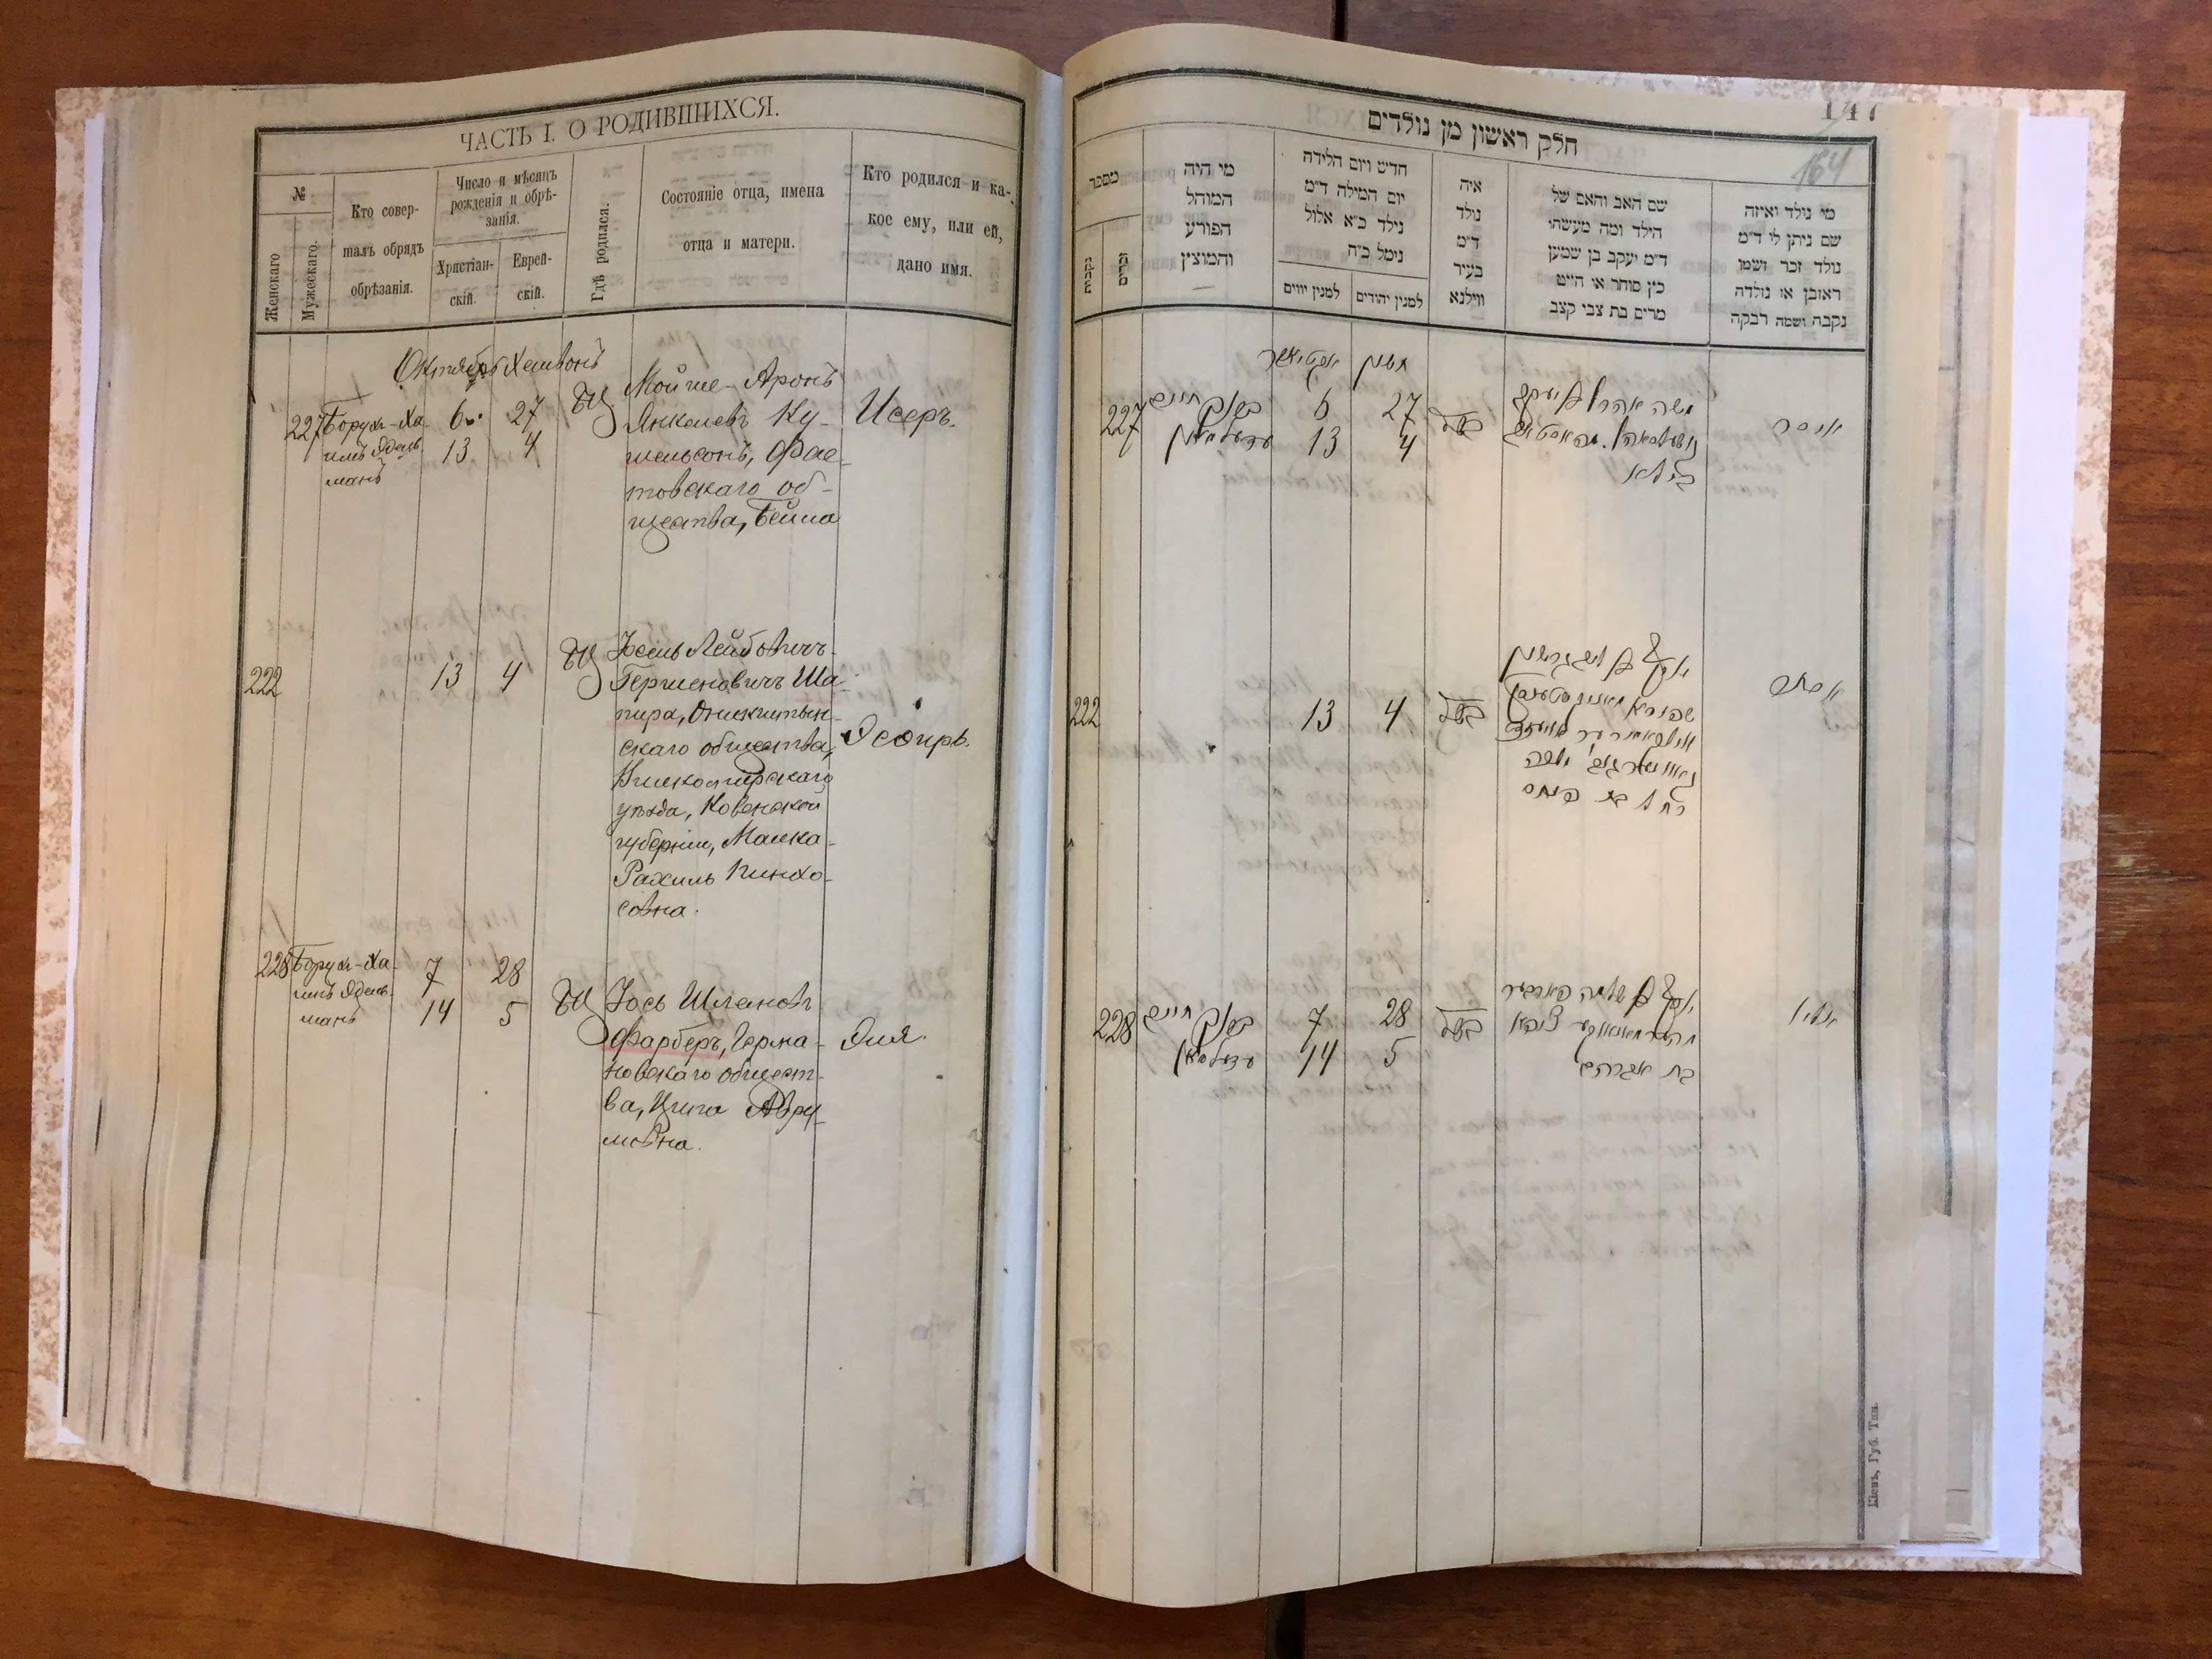 ЧАСТЬ I. О РОДИВШИХСЯ.
№
Женскаго
Мужескаго.
Кто совер-
шалъ обрядъ
обрѣзанія.
Число и мѣсяцъ
рожденія и обрѣ-
занія.
Христіан-
скій.
Еврей-
скій.
Гдѣ родился.
Состояніе отца, имена
отца и матери.
Кто родился и ка-
кое ему, или ей,
дано имя.
Октябрь Хешвонъ
227
Борух-Ха-
имъ Эдель-
манъ
6
13
27
4
БЦ
Мойше-Аронъ
Янкелевъ Ку-
шельсонъ, Фас-
товскаго об-
щества, Бейла
Исеръ.
222
13
4
БЦ
Іосель Лейбовичъ-
Гершеновичъ Ша-
пира, Оникштын-
скаго общества,
Вилкомирскаго
уѣзда, Ковенской
губерніи, Малка-
Рахиль Пинхо-
совна.
Эсѳирь.
228
Борух-Ха-
имъ Эдель-
манъ
7
14
28
5
БЦ
Іось Шлемовъ
Фарберъ, Горна-
новскаго общест-
ва, Ципа Авру-
мовна.
Эля.
147
164
חלק ראשון מן נולדים
מספר
נקבות
זכרים
מי היה
המוהל
הפורע
והמוצץ
חדש ויום הלידה
יום המילה ד״מ
נילד כ״א אלול
נימל כ״ה
למנין יווים
למנין יהודים
איה
נולד
ד״מ
בעיר
ווילנא
שם האב והאם של
הילד ומה מעשהו
ד״מ יעקב בן שמעון
כץ סוחר או חייט
מרים בת צבי קצב
מי נולד ואיזה
שם ניתן לו ד״מ
נולד זכר ושמו
ראובן או נולדה
נקבה ושמה רבקה
אקטיאבר חשון
227
ברוך חיים
עדעלמאן
6
13
27
4
משה אהרן בן יעקב
ביילא
איסר
222
13
4
רחל בת פינחס
אסתר
228
ברוך חיים
עדעלמאן
7
14
28
5
יוסף בן שלמה פארבער
ציפא
בת אברהם
אליא
Кіевъ, Губ. Тип.